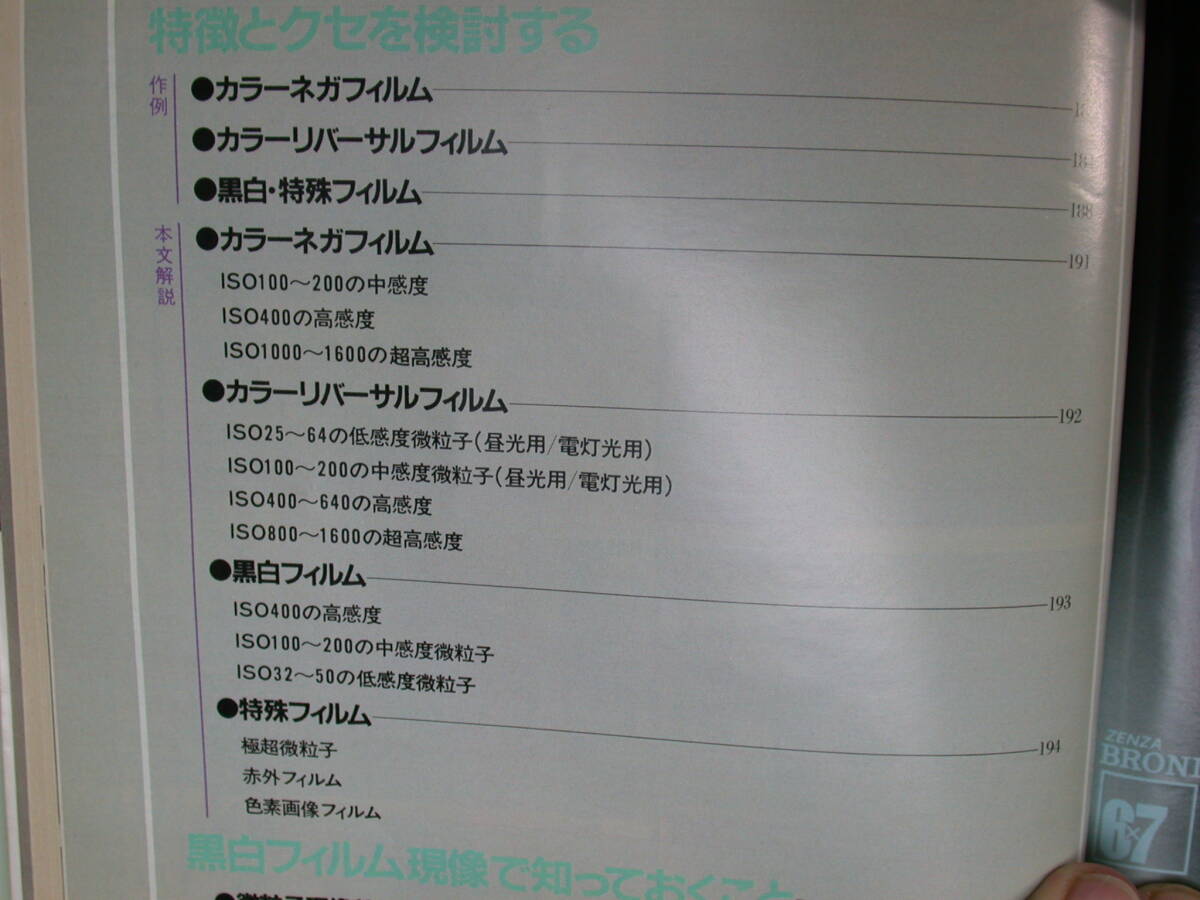 特徴とクセを検討する
作例
●カラーネガフィルム
●カラーリバーサルフィルム
●黒白・特殊フィルム 188
本文解説
●カラーネガフィルム 191
ISO100〜200の中感度
ISO400の高感度
ISO1000〜1600の超高感度
●カラーリバーサルフィルム 192
ISO25〜64の低感度微粒子(昼光用/電灯光用)
ISO100〜200の中感度微粒子(昼光用/電灯光用)
ISO400〜640の高感度
ISO800〜1600の超高感度
●黒白フィルム 193
ISO400の高感度
ISO100〜200の中感度微粒子
ISO32〜50の低感度微粒子
●特殊フィルム 194
極超微粒子
赤外フィルム
色素画像フィルム
黒白フィルム現像で知っておくこと
ZENZA
BRONI
6×7